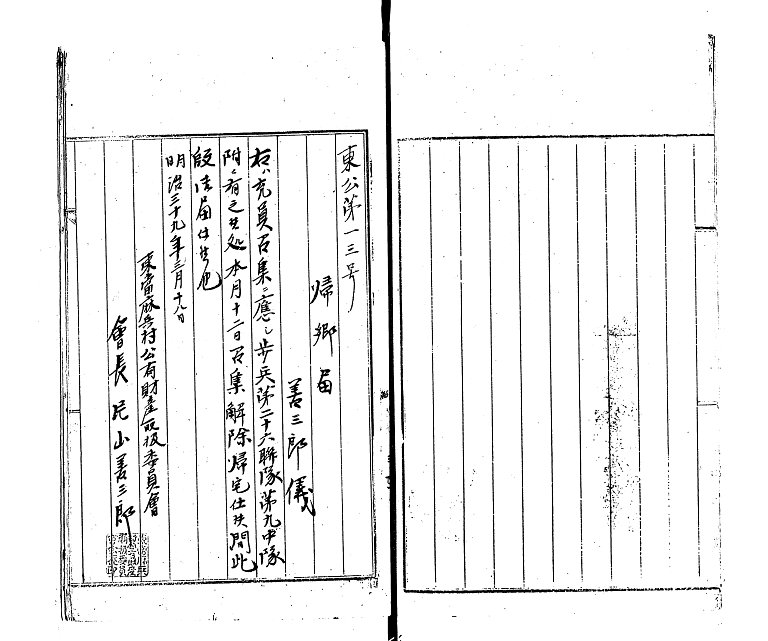 東公第一三号
帰郷届
善三郎儀
右ハ充員召集ニ應シ歩兵第二十六聯隊第九中隊
附ニ有之候処本月十二日召集解除帰宅仕候間此
段御届仕候也
明治三十九年三月十八日
東當麻村公有財産取扱委員會
會長 山善三郎